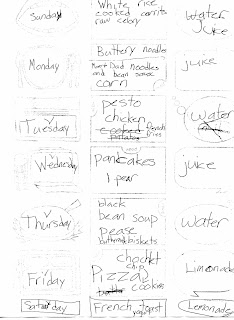 Sunday
White rice
cooked carrits
raw celory
Water
Juice
Monday
Buttery noodles
Mom+Dad noodles
and bean sauce
corn
juice
Tuesday
pesto
chicken
cooked
potatoes
french
fries
water
Wednesday
Pancakes
1 pear
juice
Thursday
black
bean soup
pease
buttermilk biskets
water
Friday
Pizza
choclet
chip
cookies
Limonade
Saturday
French toast
yogurt
Lemonade